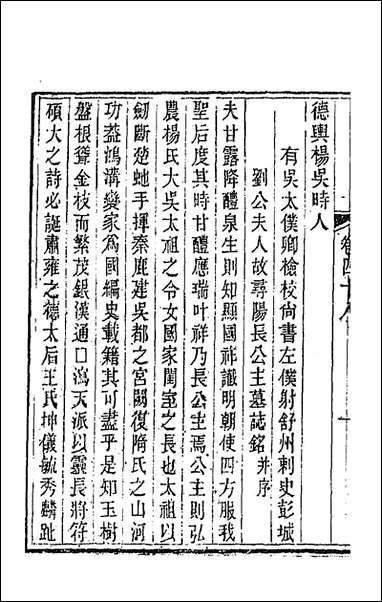 卷四十八
德輿楊吳時人
有吳太僕卿檢校尚書左僕射舒州刺史彭城
劉公夫人故尋陽長公主墓誌銘并序
夫甘露降醴泉生則知顯國祥識明朝使四方服我
聖后度其時甘醴應瑞叶祥乃長公主焉公主則弘
農楊氏大吳太祖之令女國家閨室之長也太祖以
劒斷楚虵手揮秦鹿建吳都之宮闕復隋氏之山河
功葢鴻溝變家為國編史載籍其可盡乎是知玉樹
盤根聳金枝而繁茂銀漢通口瀉天派以靈長將符
碩大之詩必誕肅雍之德太后王氏坤儀毓秀麟趾